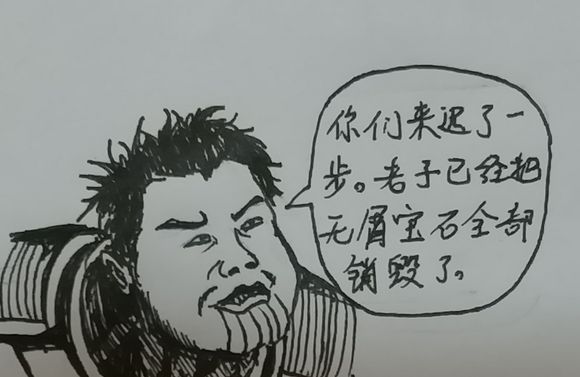 你们来迟了一
步。老子已经把
无屑宝石全部
销毁了。